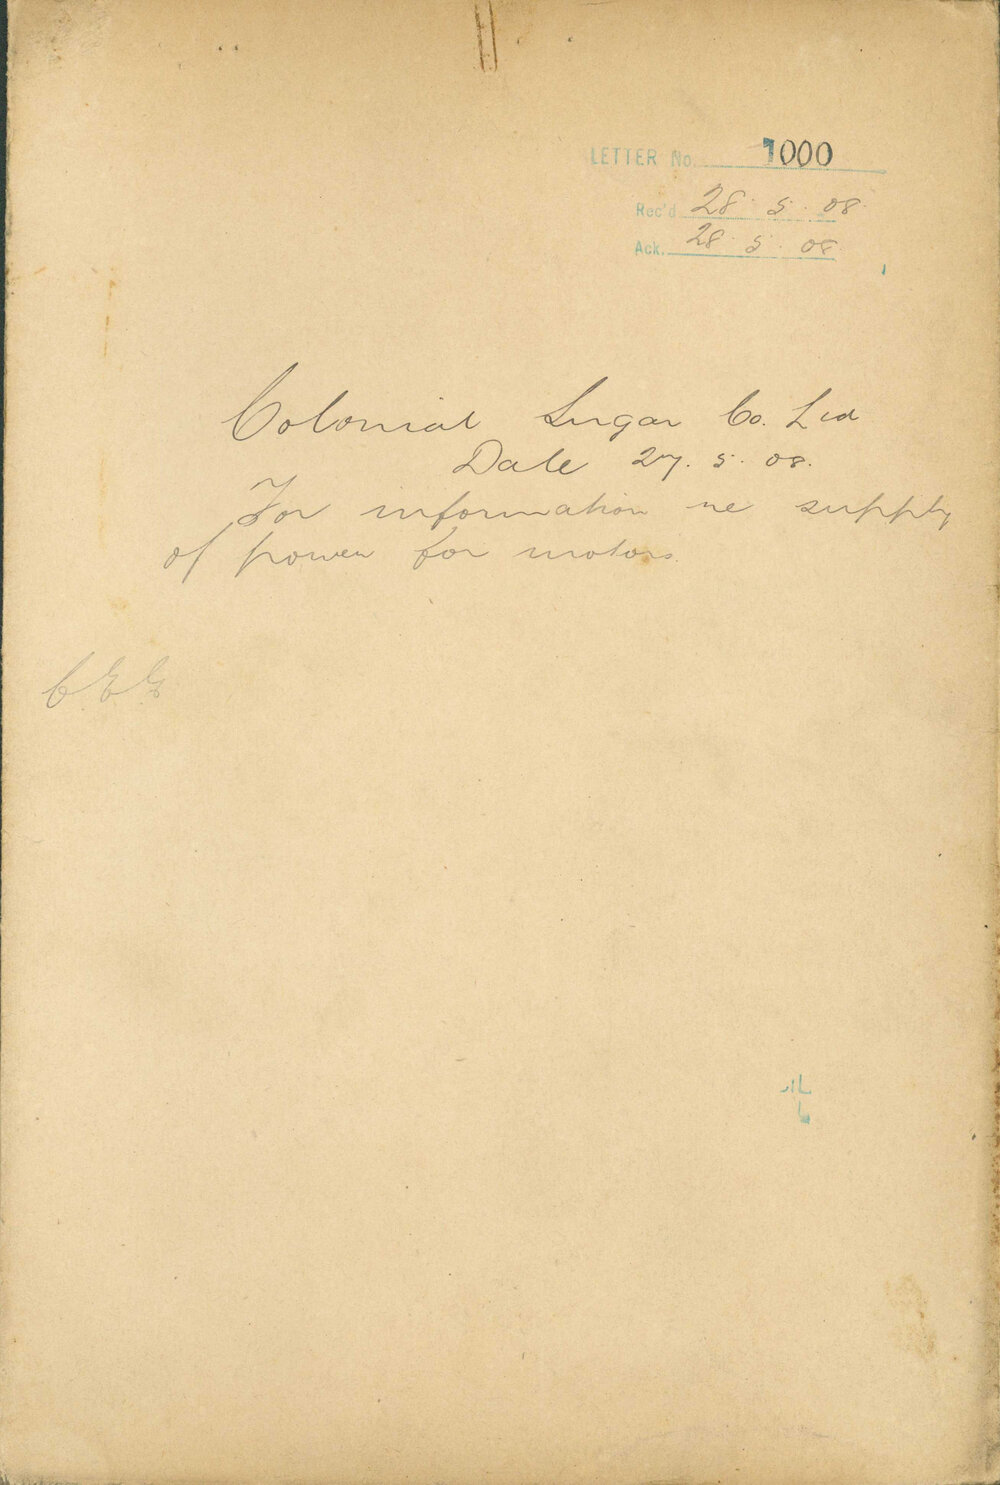 LETTER No. 1000
Rec'd 28. 5. 08.
Ack. 28. 5. 08.
Colonial Sugar Co. Ltd
Date 27. 5. 08.
For information re supply
of power for motors.